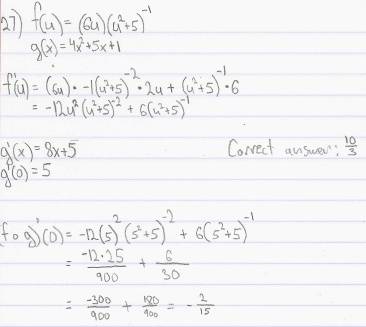 27) f(u) = (6u)(u²+5)⁻¹
g(x) = 4x²+5x+1
f'(u) = (6u)·-1(u²+5)⁻²·2u + (u²+5)⁻¹·6
= -12u²(u²+5)⁻² + 6(u²+5)⁻¹
g'(x) = 8x+5 Correct answer: 10/3
g'(0) = 5
(f∘g)'(0) = -12(5)²(5²+5)⁻² + 6(5²+5)⁻¹
= -12·25/900 + 6/30
= -300/900 + 180/900 = -2/15